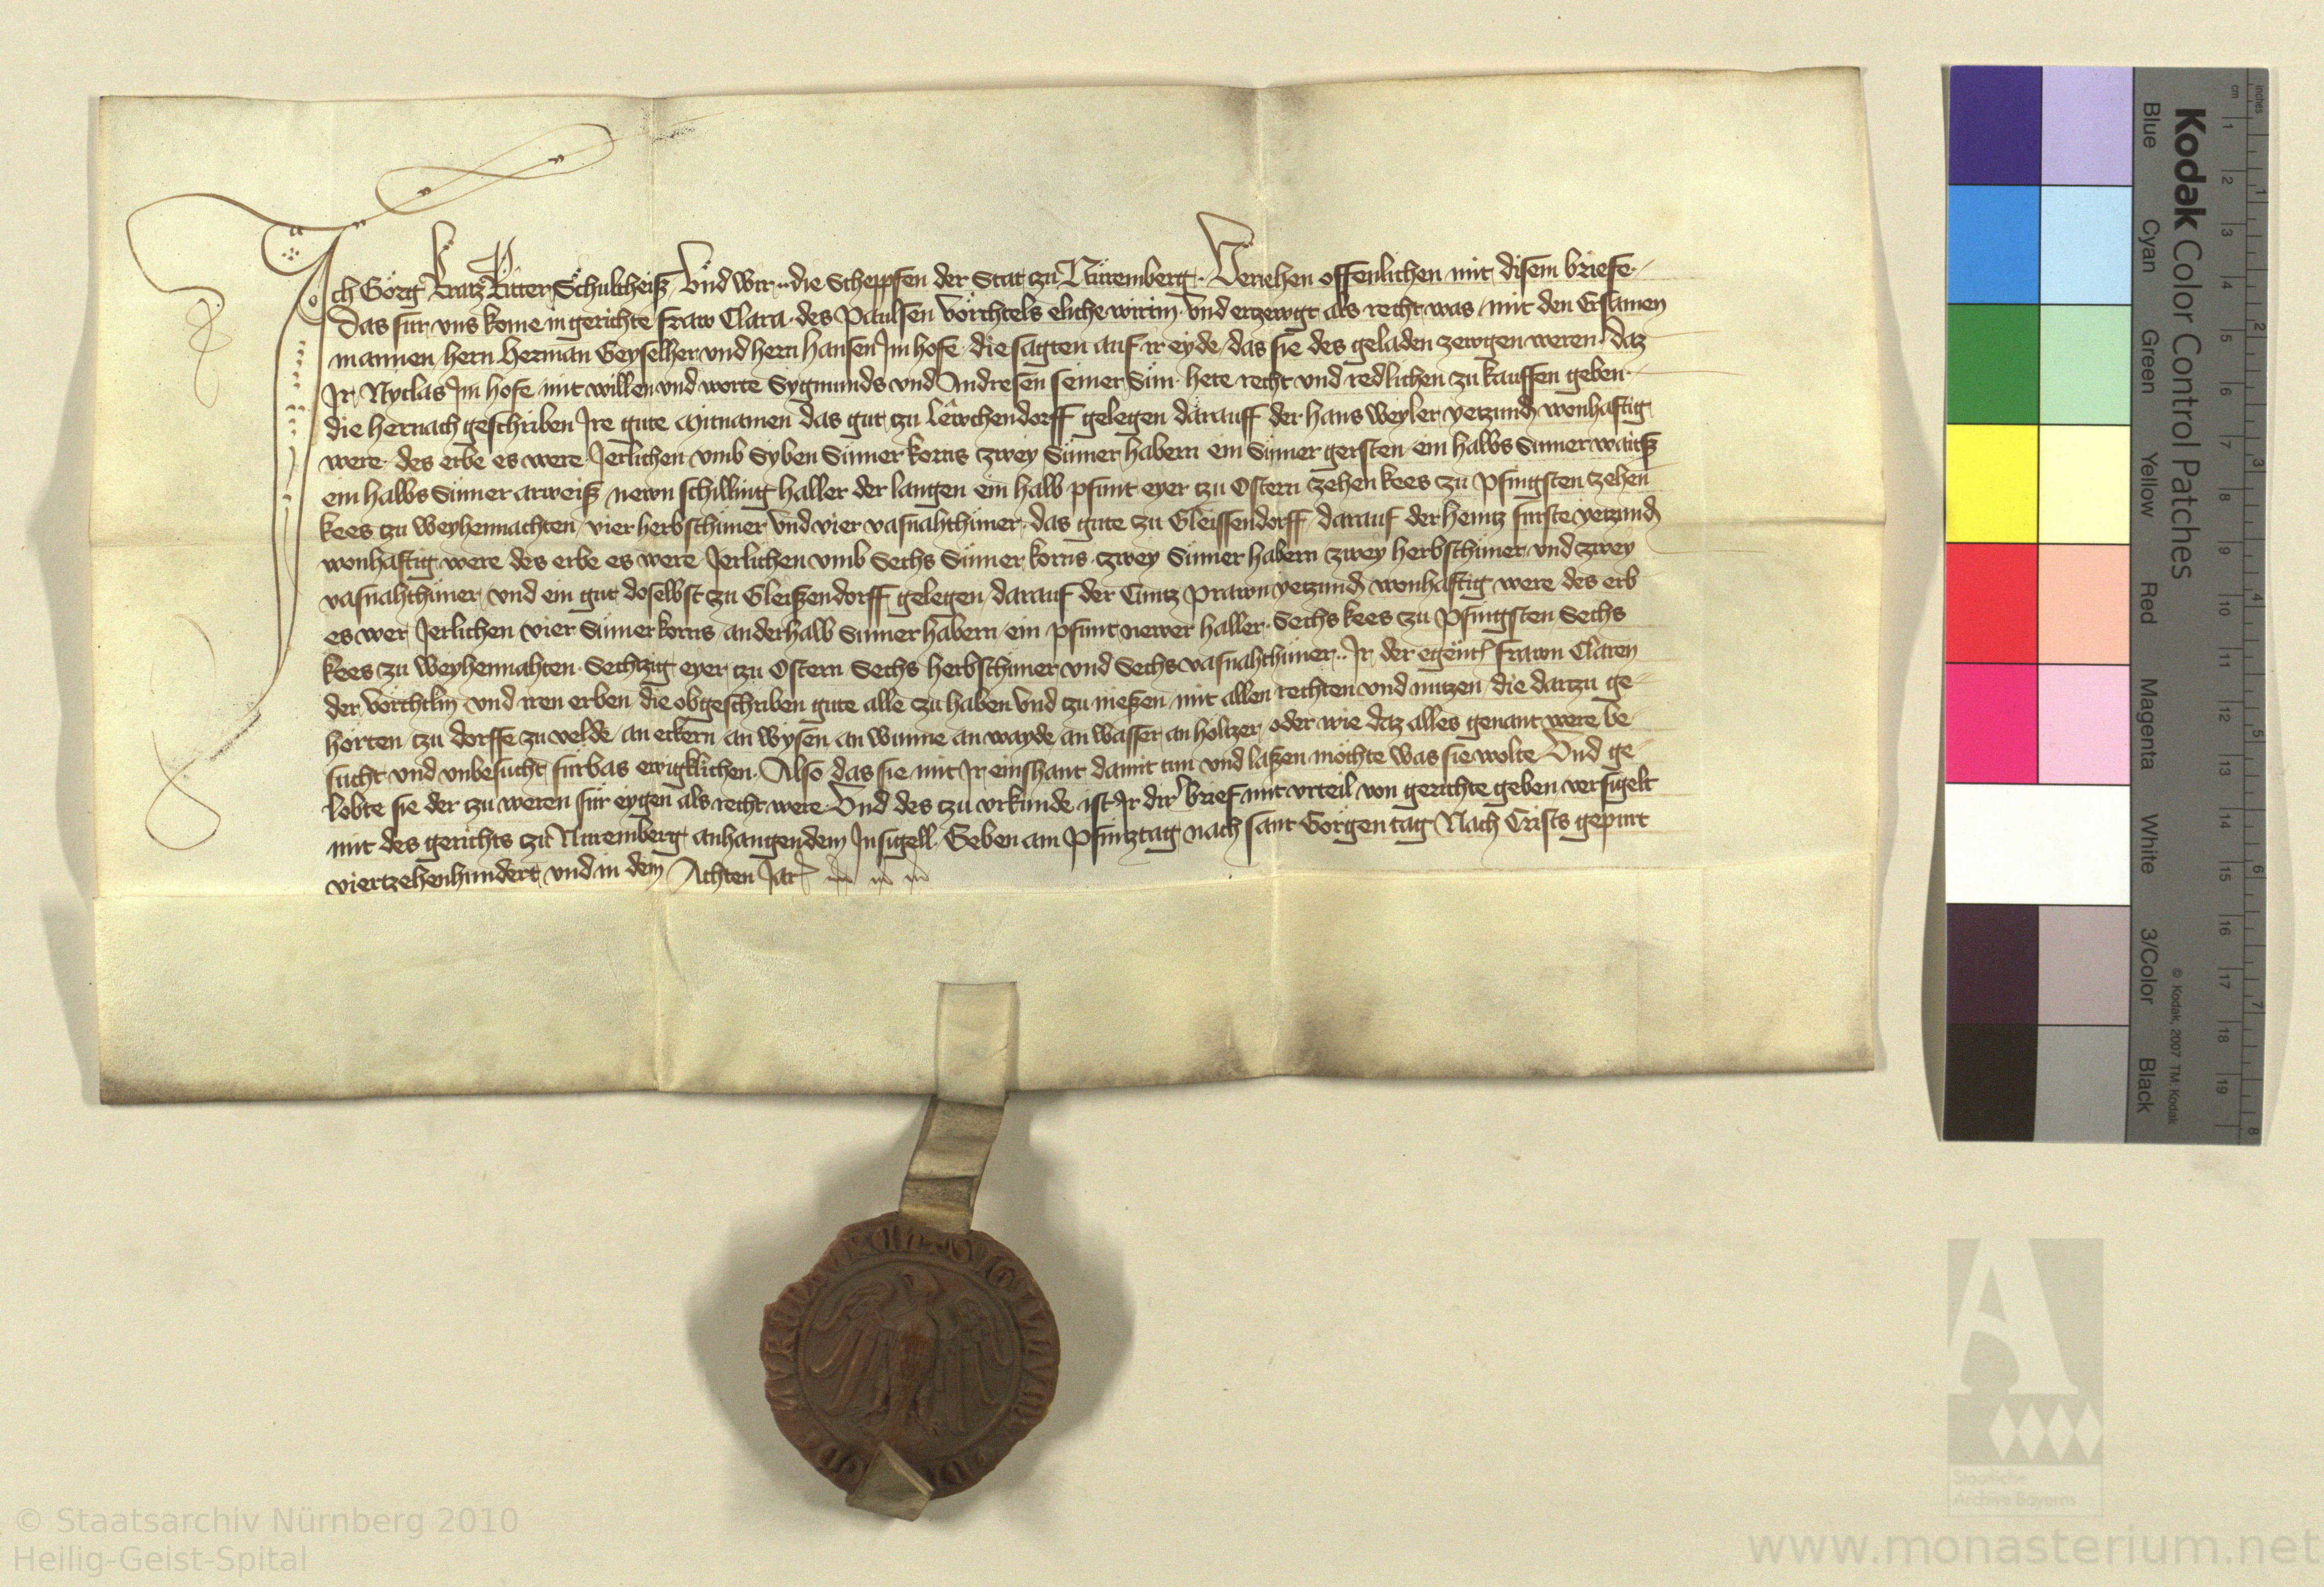 Ich Görg Kratz Ritter Schultheiß Vnd wir die Scheppfen der Stat zu Nüremberg Veriehen offenlichen mit disem briefe
Das fur vns kome in gerichte fraw Clara des Paulsen Vörchtels eliche wirtin Vnd erzewgt als recht was mit den Ersamen
mannen hern Herman Geyselher vnd hern hansen Im hofe die sagten auf ir eyde das sie des geladen zewgen weren daz
Ir Nyclas Im hofe mit willen vnd worte Sygmunds vnd Andresen seiner Sün hete recht vnd redlichen zu kauffen geben
die hernach geschriben Ire gute Mitnamen das gut zu Lêwchendorff gelegen darauff der hans weyler yetzund wonhaftig
were des erbe es were Jerlichen vmb Syben Sümer korns zwey Sümer habern ein Sümer gersten ein halbs Sümer waitz
ein halbs Sümer arweiß newn schilling haller der langen ein halb pfunt eyer tzu Ostern zehen kees zu Pfingsten zehen
kees tzu weyhennachten vier herbsthüner vnd vier vasnahthüner das gute zu Gleissendorff darauf der heintz fürste yetzund
wonhaftig were des erbe es were Jerlichen vmb Sechs Sümer korns zwey Sümer habern zwey herbsthüner vnd zwey
vasnahthüner vnd ein gut doselbst zu Gleißendorff gelegen darauf der Cuntz Prawn yetzund wonhaftig were des erb
es wer Jerlichen vier Sümer korns anderhalb Sümer habern ein pfunt newer haller Sechs kees zu Pfingsten Sechs
kees zu weyhennahten Sechtzig eyer tzu Ostern Sechs herbsthüner vnd Sechs vasnahthüner Ir der egent frawn Claren
der vörchtlin vnd iren erben die obgeschriben gute alle zu haben vnd tzu nießen mit allen rechten vnd nutzen die dartzu ge-
hörten tzu dorffe zu velde an eckern an wysen an wunne an wayde an wasser an holtzer oder wie daz alles genant were be-
sucht vnd vnbesucht fürbas ewigklichen Also das sie mit Ir einshant damit tun vnd laßen möchte was sie wolte Vnd ge-
lobte sie der tzu weren für eygen als recht were Vnd des tzu vrkunde ist Ir dirr brief mit vrteil von gerichte geben versigelt
mit des gerichts zu Nuremberg anhangendem Insigell Geben am Pfintztag nach sant Görgen tag Nach Crists gepurt
viertzehenhundert vnd in dem Achten Jar
Kodak Color Control Patches
Blue Cyan Green Yellow Red Magenta White 3/Color Black
© Kodak, 2007 TM: Kodak
inches 1 2 3 4 5 6 7 8
cm 1 2 3 4 5 6 7 8 9 10 11 12 13 14 15 16 17 18 19
Staatliche
Archive Bayerns
© Staatsarchiv Nürnberg 2010
Heilig-Geist-Spital
www.monasterium.net